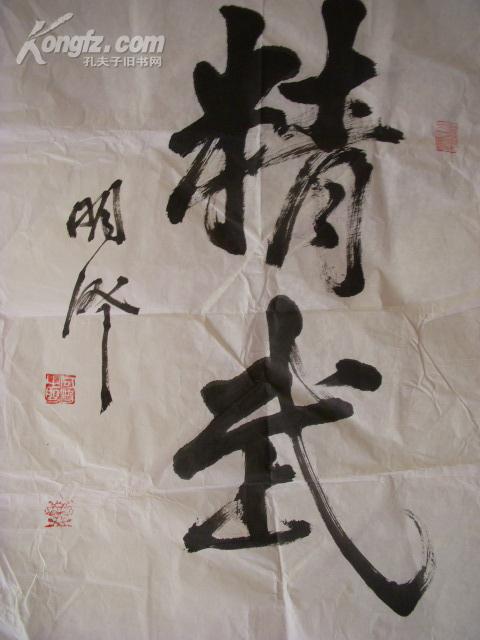 Kongfz.com
孔夫子旧书网
精武
明泽